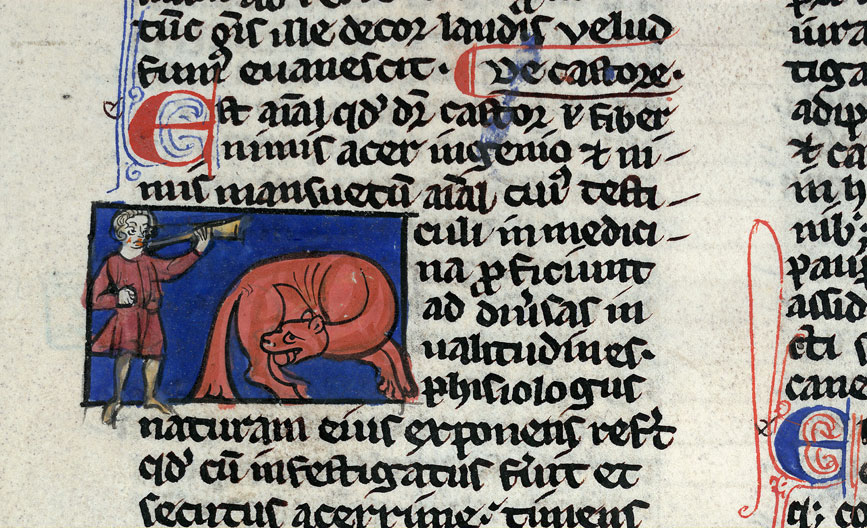 tūc oīs ille decor laudis velud
fumꝰ evanescit · De castore ·
Est aīal qd' dr̄ castor ⁊ fiber
nimis acer ingenio ⁊ ni
mis mansuetū aīal cuiꝰ testi
culi in medici
na ꝓficiunt
ad diu͛sas in
ualitudines ·
phisiologus
naturam eius exponens ref͛t
qd' cū insestigatus fu͛it et
secutus acerrime · timens
tiga
adip
⁊ ca
in h
nib
pau
assid
cti s
cane
E